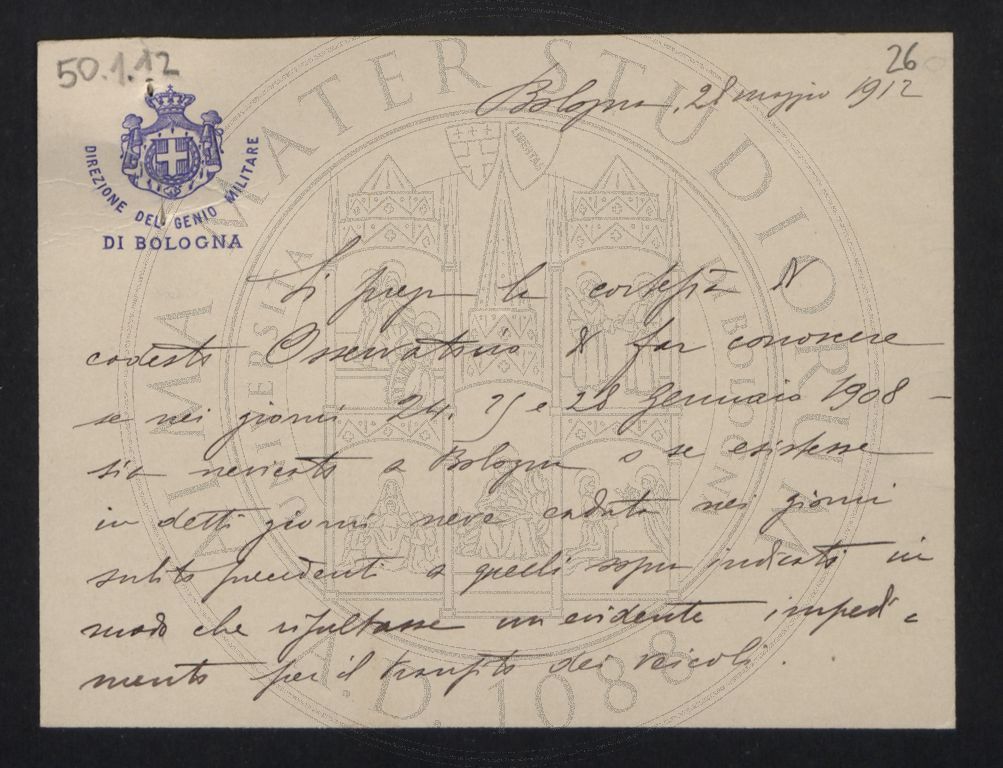 50.1.12
26
Bologna, 28 maggio 1912
DIREZIONE DEL GENIO MILITARE
DI BOLOGNA
Si prega la cortesia di
codesto Osservatorio di far conoscere
se nei giorni 24. 25 e 28 Gennaio 1908 –
sia nevicato a Bologna o se esistesse
in detti giorni neve caduta nei giorni
subito precedenti a quelli sopra indicati in
modo che risultasse un evidente impedi-
mento per il transito dei veicoli.
ALMA MATER STUDIORUM
A.D. 1088
LIBERTAS